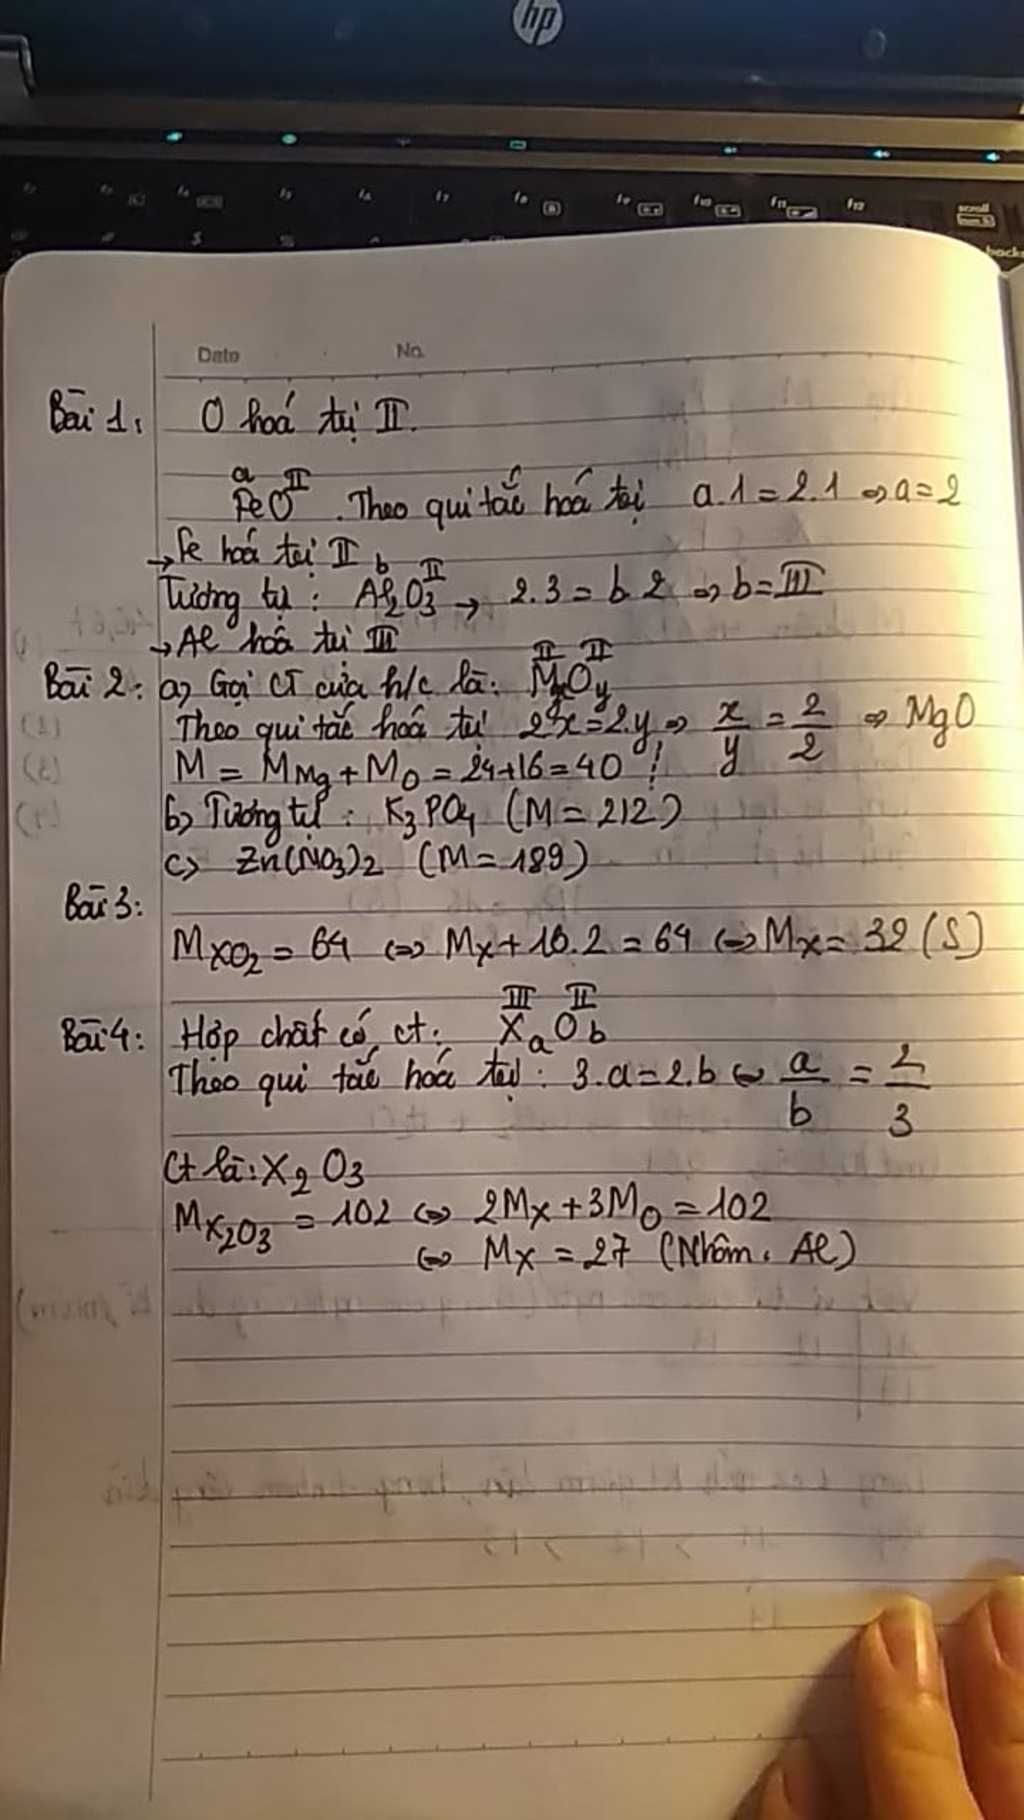 hp
f8
f9
f10
f11
f12
scroll
$
%
^
backs
Date
No.
Bài 1: O hoá trị II.
a II
FeO. Theo qui tắc hoá trị a.1=2.1 => a=2
→ Fe hoá trị II
b II
Tương tự: Al2O3 → 2.3 = b.2 => b = III
→ Al hoá trị III
II II
Bài 2: a) Gọi CT của h/c là: MgxOy
Theo qui tắc hoá trị 2.x=2.y => x/y = 2/2 => MgO
M = MMg + MO = 24+16=40
b) Tương tự: K3PO4 (M = 212)
c) Zn(NO3)2 (M = 189)
Bài 3:
MXO2 = 64 <=> MX + 16.2 = 64 <=> MX = 32 (S)
III II
Bài 4: Hợp chất có ct: XaOb
Theo qui tắc hoá trị: 3.a=2.b <=> a/b = 2/3
Ct là: X2O3
MX2O3 = 102 <=> 2MX + 3MO = 102
<=> MX = 27 (Nhôm. Al)